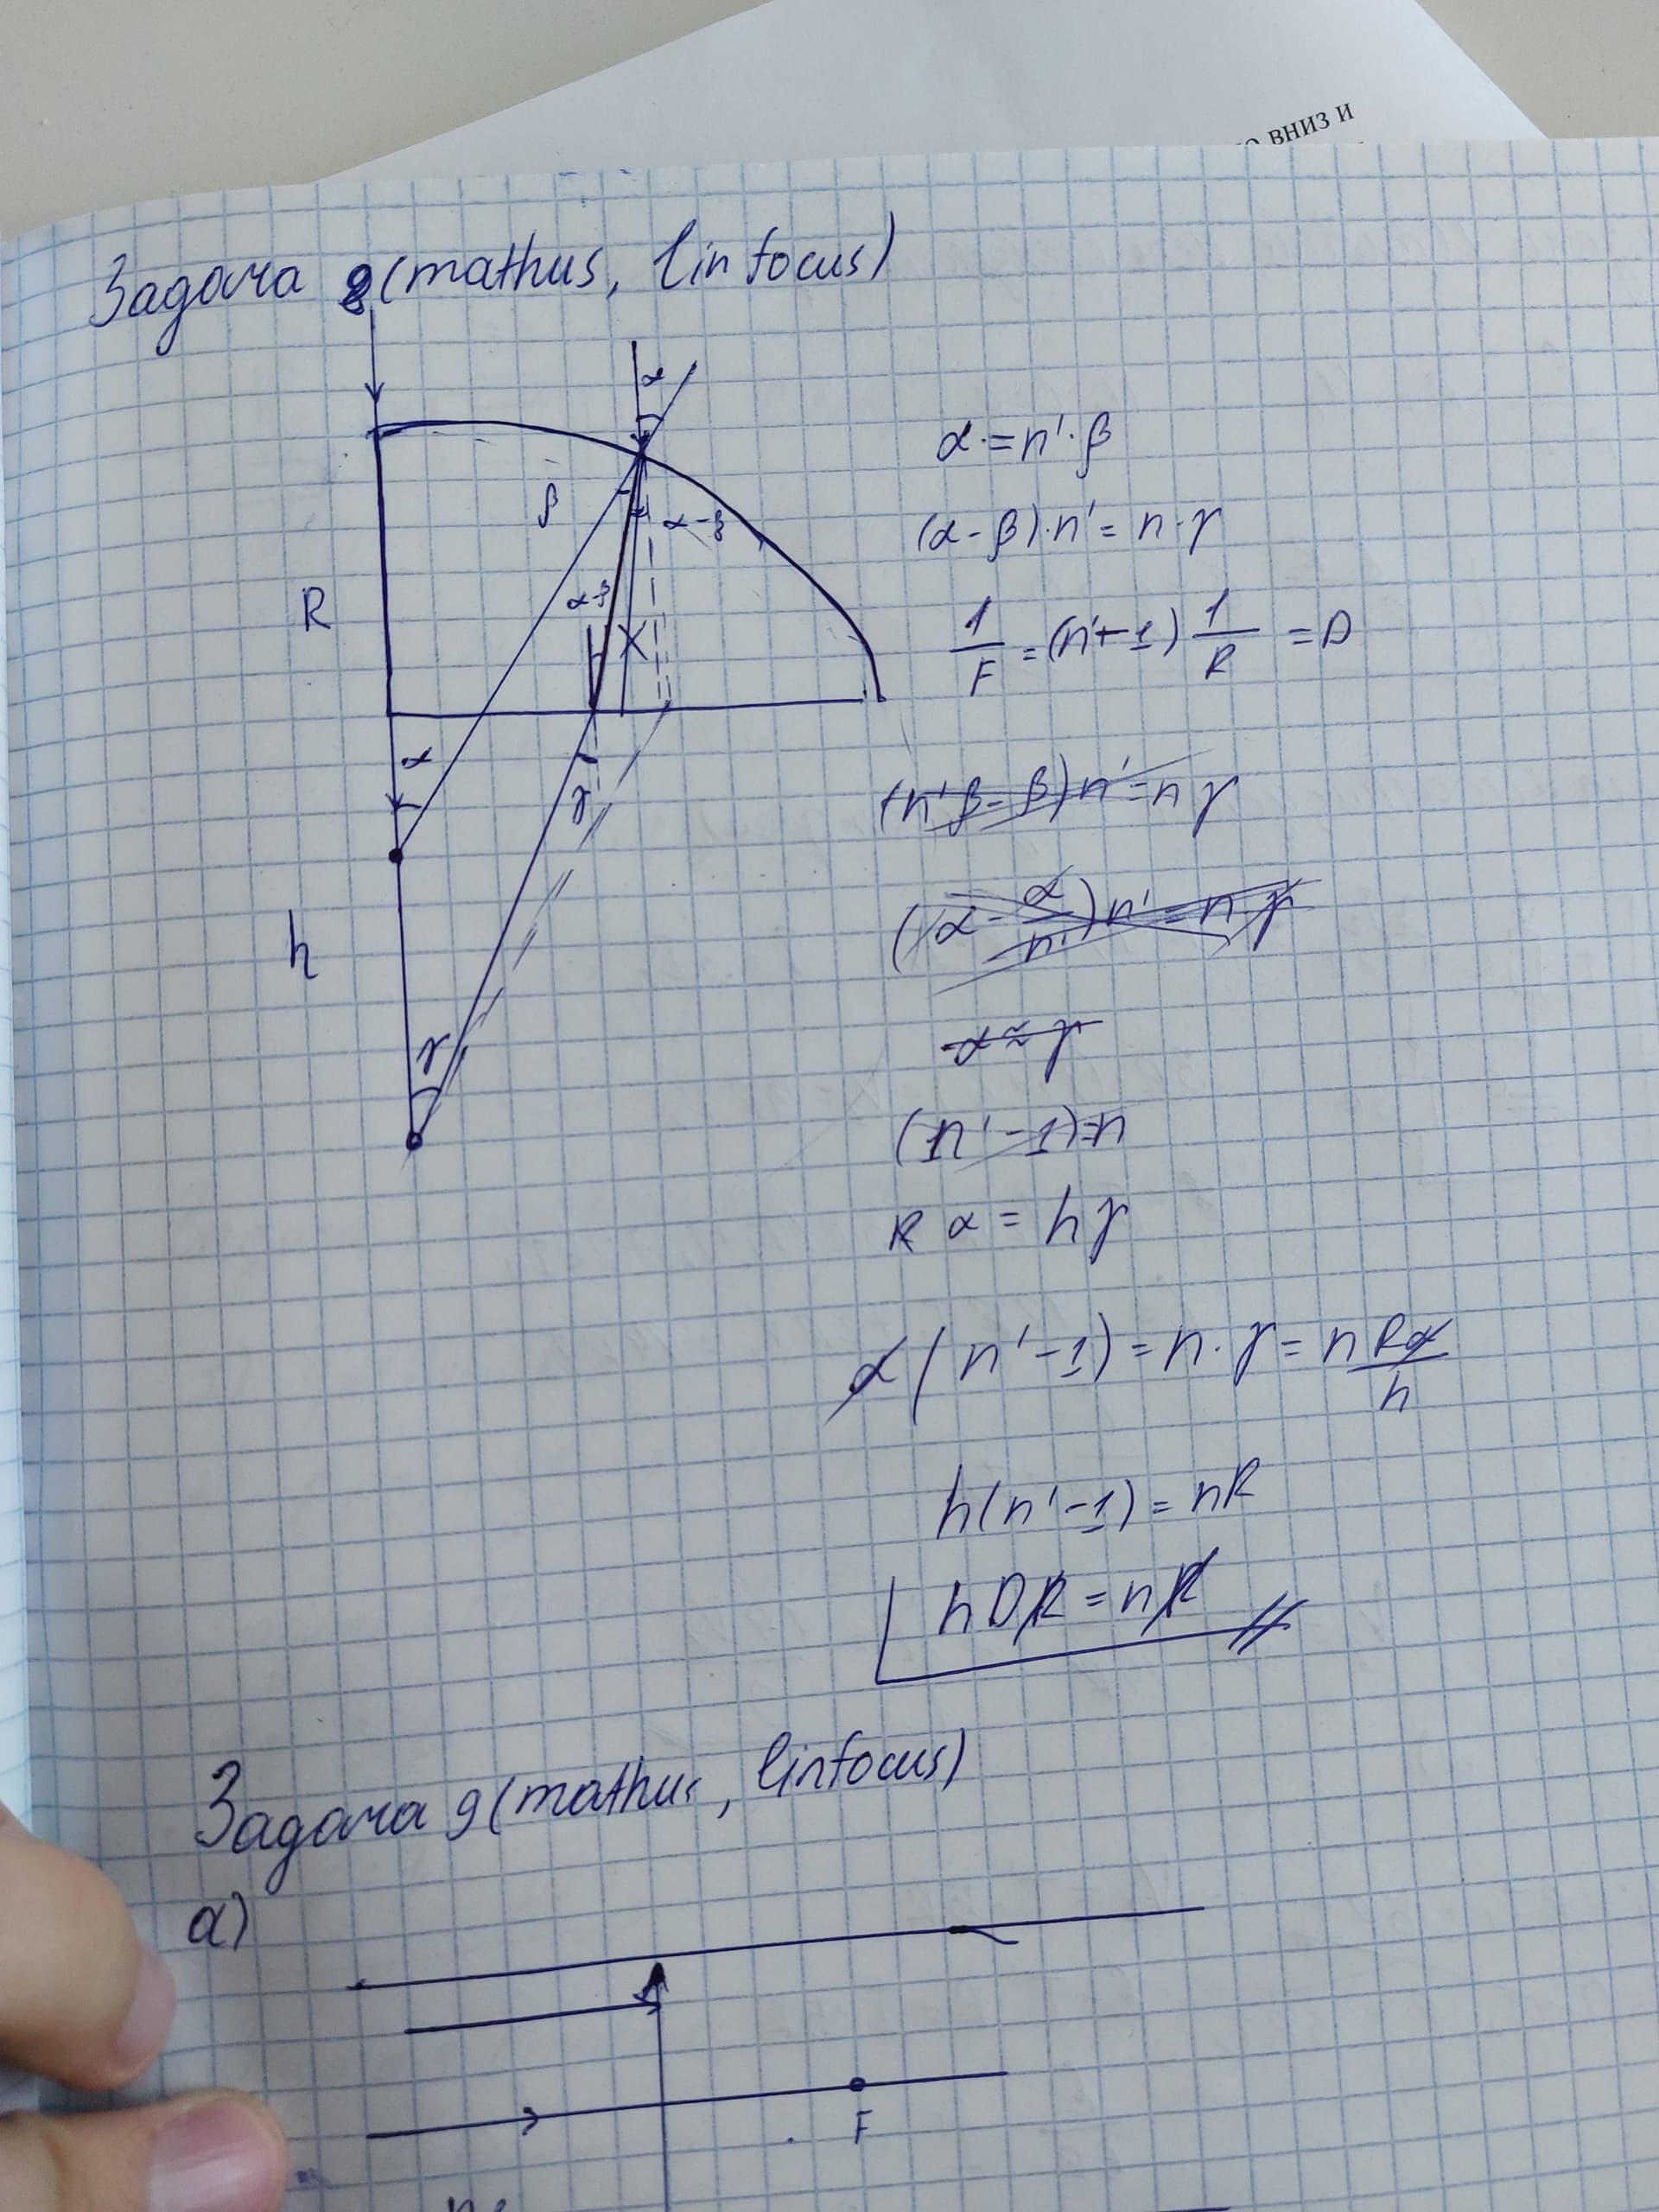 вниз и
Задача 8 (mathus, linfocus)
α
β
α-β
α-β
R
α
γ
h
γ
α = n'·β
(α-β)·n' = n·γ
1/F = (n'-1) 1/R = D
(n'β-β)n' = nγ
(α - α/n')n' = n·γ
α≈γ
(n'-1)=n
Rα = hγ
α(n'-1) = n·γ = n Rα/h
h(n'-1) = nR
hDR = nR
Задача 9 (mathus, linfocus)
а)
F